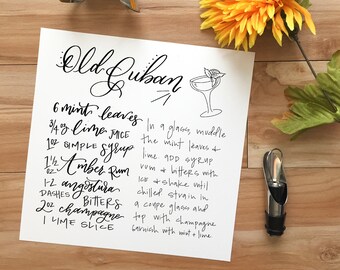 Old Cuban
6 mint leaves
3/4 oz lime JUICE
1oz SIMPLE syrup
1 1/2 oz. Amber Rum
1-2 DASHES angostura BITTERS
2oz champagne
1 LIME SLICE
In a glass, muddle
the mint leaves &
lime add syrup
rum & bitters with
ice & shake until
chilled strain in
a coupe glass and
top with champagne
garnish with mint & lime